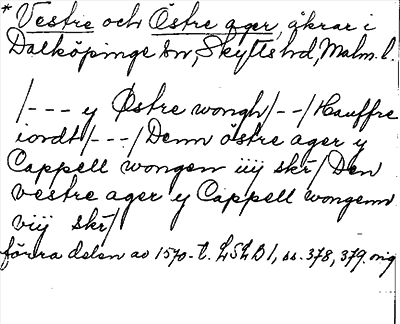 * Vestre och Östre ager, åkrar i
Dalköpinge sn, Skytts hd, Malm. l.
/--- y Østre wongh/--/Hauffre
iordt/---/Denn östre ager y
Cappell wongen iiij skr/Den
vestre ager y Cappell wongenn
viij skr/
förra delen av 1570-t. LSLB 1, ss. 378, 379. orig